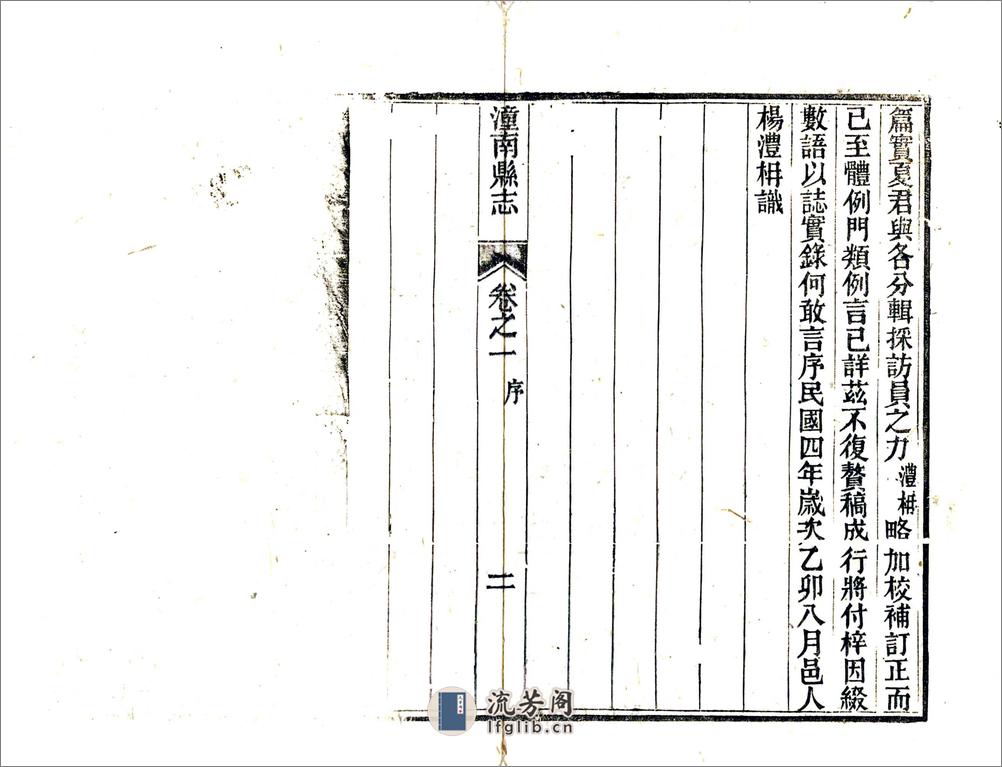 篇實夏君與各分輯採訪員之力澧枏略加校補訂正而
已至體例門類例言已詳茲不復贅稿成行將付梓因綴
數語以誌實錄何敢言序民國四年歲次乙卯八月邑人
楊澧枏識
潼南縣志 卷之一 序 二
流芳阁
lfglib.cn